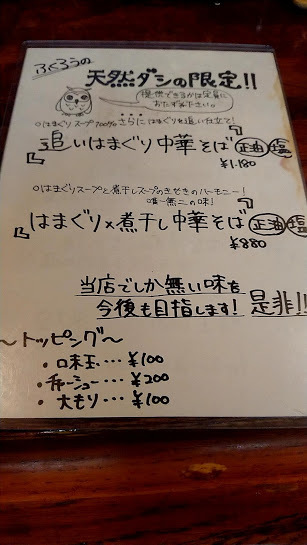 ふくろうの
天然ダシの限定!!
提供できるかは定員に
おたずね下さい。
○はまぐりスープ100%さらにはまぐりを追い仕立て!
『追いはまぐり中華そば』正油 塩
¥1.180
○はまぐりスープと煮干しスープのきせきのハーモニー!
唯一無二の味!
『はまぐり×煮干し中華そば』正油 塩
¥880
当店でしか無い味を
今後も目指します! 是非!!
〜トッピング〜
・味玉・・・¥100
・チャーシュー・・・¥200
・大もり・・・¥100